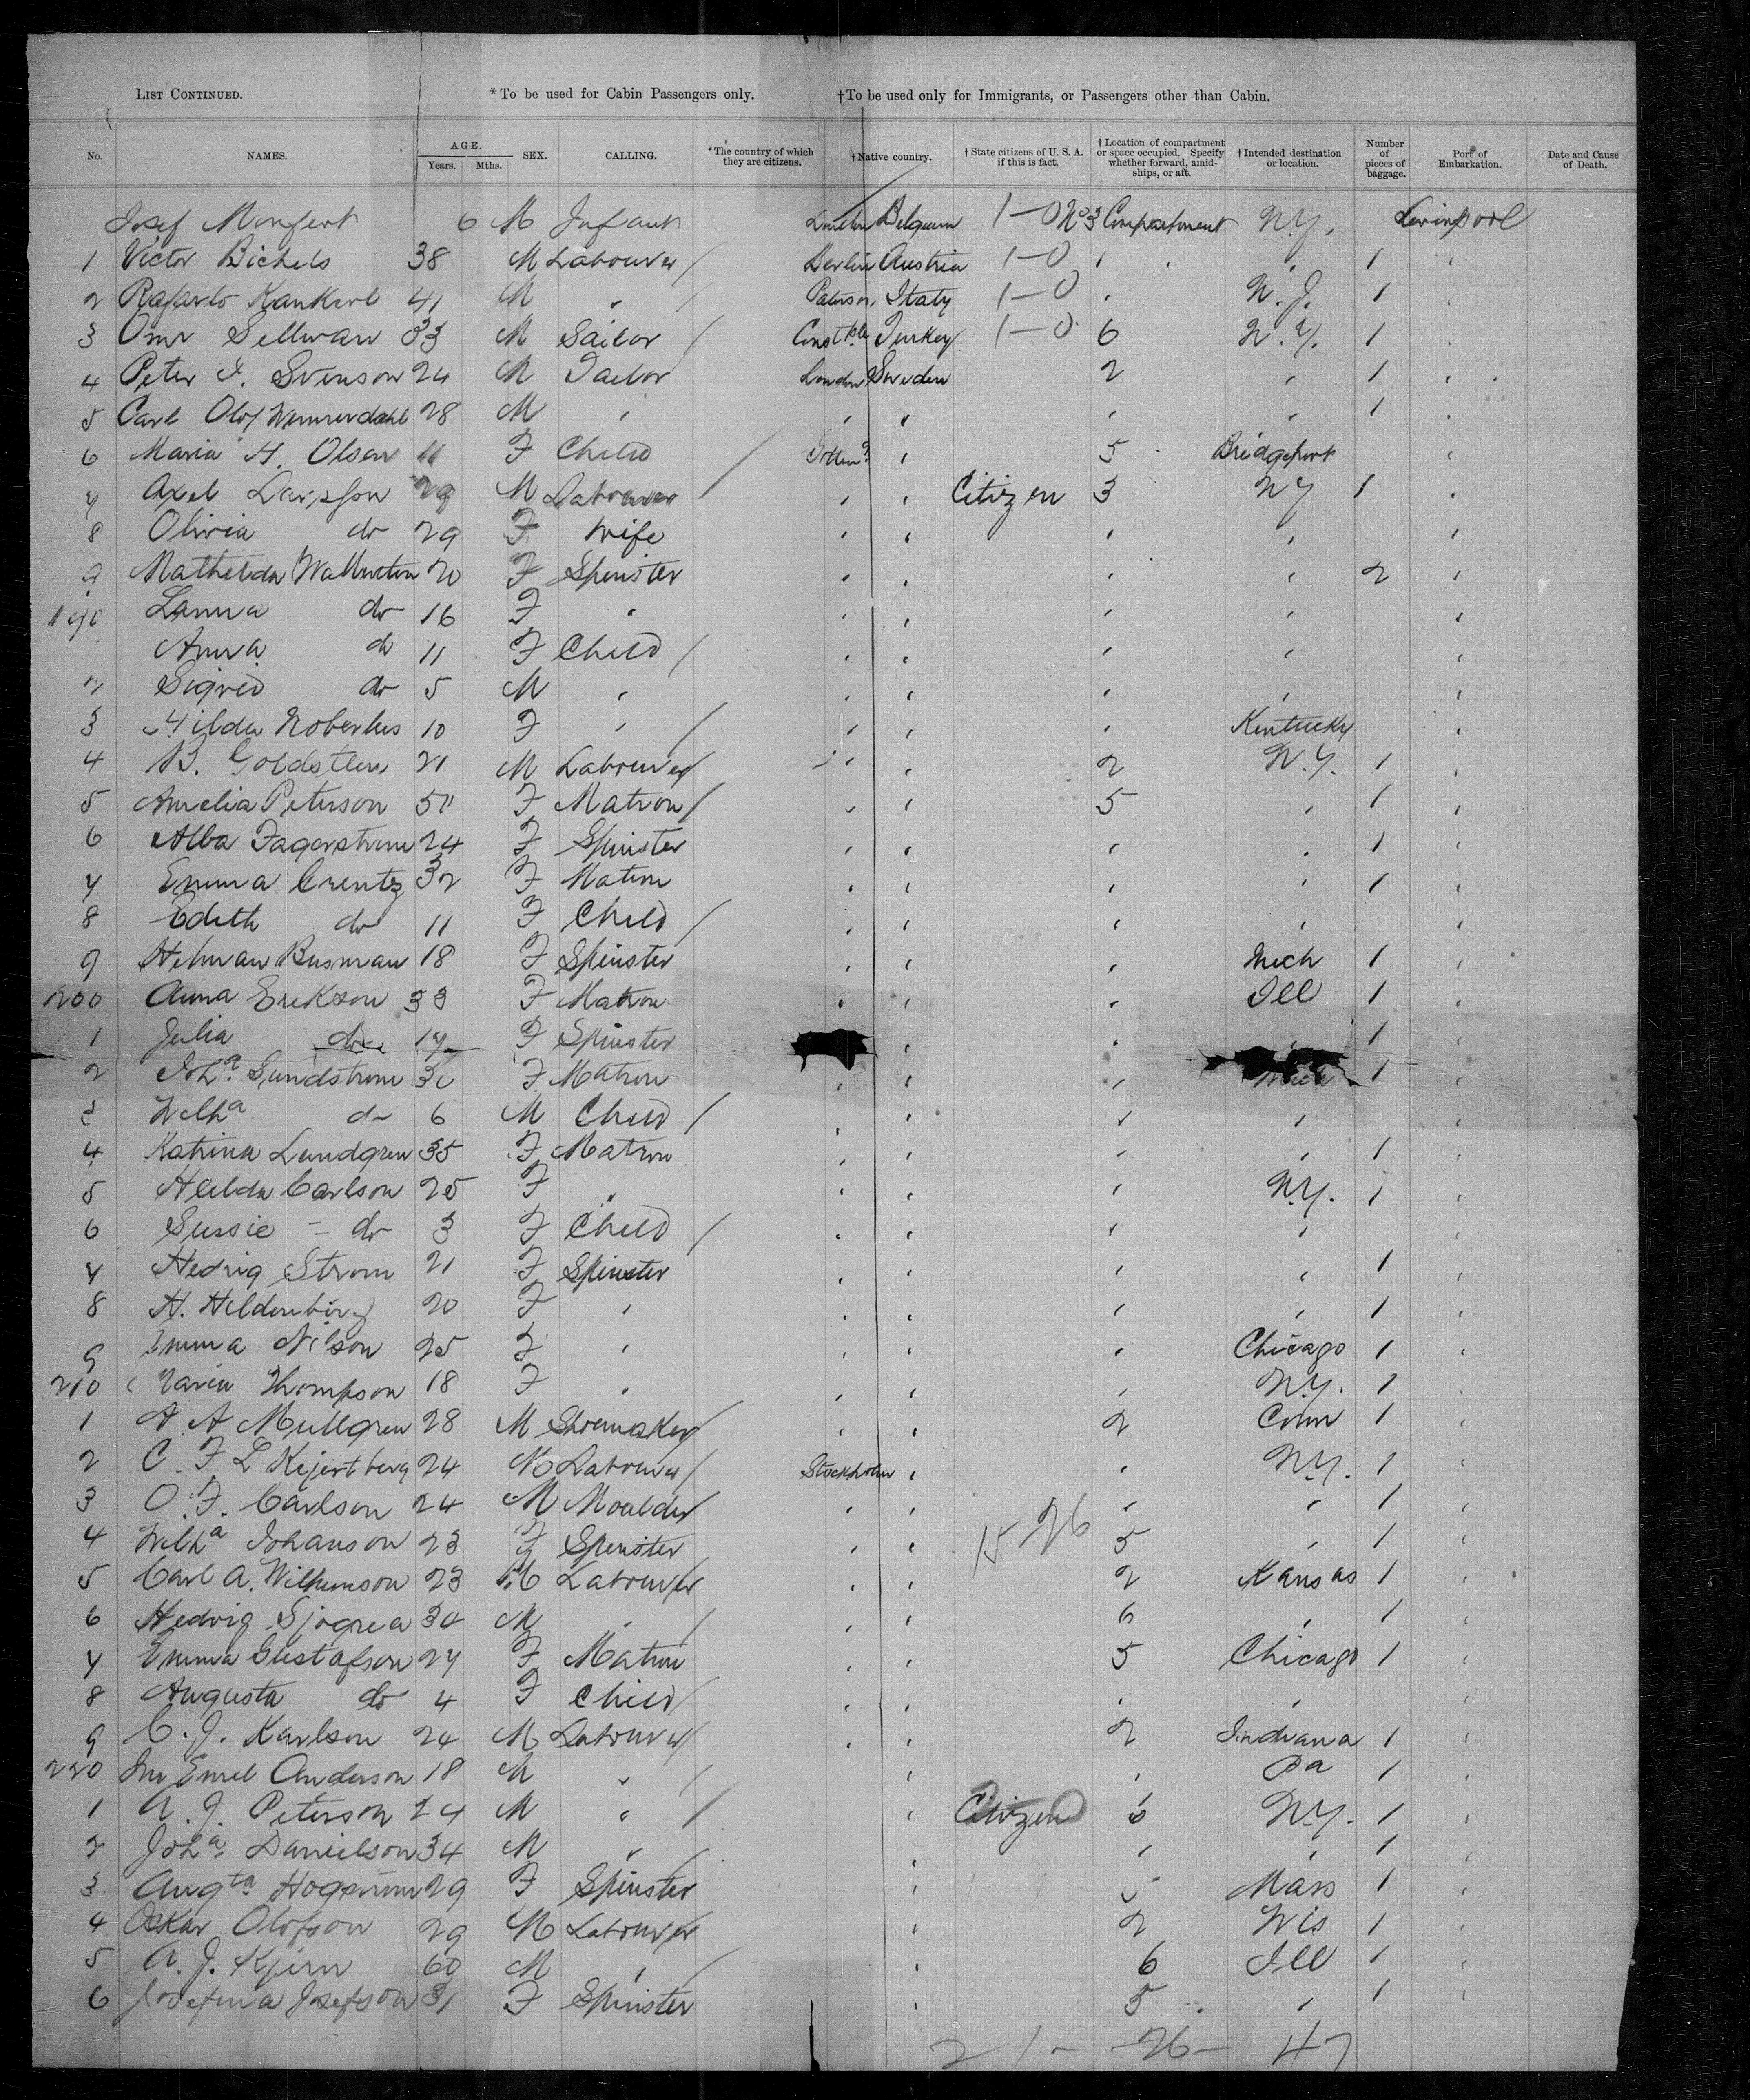 LIST CONTINUED. *To be used for Cabin Passengers only. †To be used only for Immigrants, or Passengers other than Cabin.
No. NAMES. AGE. Years. Mths. SEX. CALLING. *The country of which they are citizens. †Native country. †State citizens of U. S. A. if this is fact. †Location of compartment or space occupied. Specify whether forward, amidships, or aft. †Intended destination or location. Number of pieces of baggage. Port of Embarkation. Date and Cause of Death.
Josef Monfert 6 M Infant Belgium 1-0 No 3 Compartment N.Y. Liverpool
1 Victor Bichels 38 M Labourer Berlin Austria 1-0 " " 1 "
2 41 M " Paterson Italy 1-0 " N.J. 1 "
3 Omr Sellman 33 M Sailor Constple Turkey 1-0 6 N.Y. 1 "
4 Peter I. Svenson 24 M Tailor London Sweden 2 " 1 "
5 Carl Olof 28 M " " " " " 1 "
6 Maria H. Olsen 11 F Child " 5 Bridgeport "
7 Axel 29 M Labourer " " Citizen 3 NY 1 "
8 Olivia do 29 F Wife " " " " "
9 Mathilda 20 F Spinster " " " " 2 "
190 do 16 F " " " " " "
Anna do 11 F Child " " " " "
2 Sigrid do 5 M " " " " " "
3 Hilda 10 F " " " " Kentucky "
4 B. Goldstein 21 M Labourer " " 2 N.Y. 1 "
5 Amelia Peterson 51 F Matron " " 5 " 1 "
6 Alba Fagerstrum 24 F Spinster " " " " 1 "
7 Emma Crentz 32 F Matron " " " " 1 "
8 Edith do 11 F Child " " " " "
9 Helman Busman 18 F Spinster " " " Mich 1 "
200 Anna Erikson 33 F Matron " " " Ill 1 "
1 Julia do 17 F Spinster " " 1 "
2 Joha Sundstrom 30 F Matron " " " Mich 1 "
3 Wilha do 6 M Child " " " " "
4 Katrina Lundgren 35 F Matron " " " " 1 "
5 Hilda Carlson 25 F " " " " N.Y. 1 "
6 Sussie - do 3 F Child " " " " "
7 Hedvig Strom 21 F Spinster " " " " 1 "
8 H. Hildenberg 20 F " " " " " 1 "
9 Emma Nilson 25 F " " " " Chicago 1 "
210 Karin Thompson 18 F " " " " N.Y. 1 "
1 A A Mullgren 28 M Shoemaker " " 2 Conn 1 "
2 C. F. L Kijertberg 24 M Labourer Stockholm " " N.Y. 1 "
3 O. F. Carlson 24 M Moulder " " " " 1 "
4 Wilha Johanson 23 F Spinster " " 15-26 5 " 1 "
5 Carl A. Wilhemson 23 M Labourer " " 2 Kansas 1 "
6 Hedvig Sjogrea 34 M " " " 6 " 1 "
7 Emma Gustafson 27 F Matron " " 5 Chicago 1 "
8 Augusta do 4 F Child " " " " "
9 C. J. Karlson 24 M Labourer " " 2 Indiana 1 "
220 Emel Anderson 18 M " " " Pa 1 "
1 A. J. Peterson 24 M " " Citizen 6 N.Y. 1 "
2 Joha Danielson 34 M " " " " 1 "
3 Augta 29 F Spinster " 5 Mass 1 "
4 Oskar Olofson 29 M Labourer " 2 Wis 1 "
5 A. J. Kjern 60 M " " 6 Ill 1 "
6 Josefina Josefson 31 F Spinster " 5 " 1 "
21- -26- 47